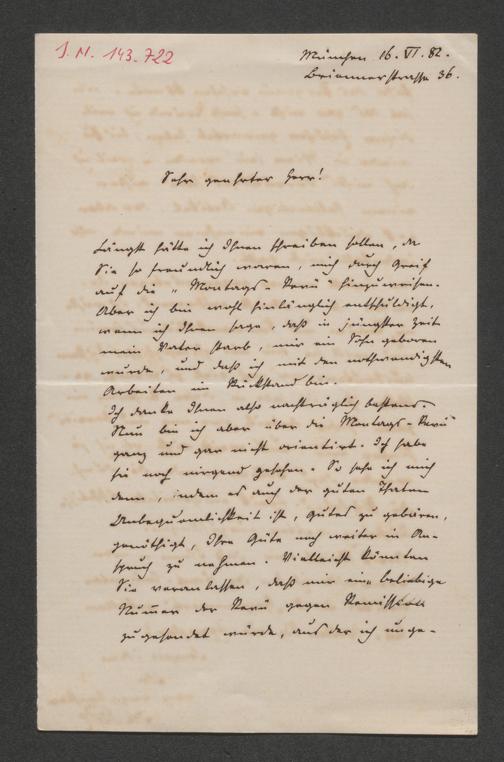 J. N. 143.722
München 16. VI. 82.
Briennerstrasse 36.
Sehr geehrter Herr!
Längst hätte ich Ihnen schreiben sollen, da
Sie so freundlich waren, mich durch Greif
auf die „Montags-Revü" hinzuweisen.
Aber ich bin wohl hinlänglich entschuldigt,
wenn ich Ihnen sage, daß in jüngster Zeit
mein Vater starb, mir ein Sohn geboren
wurde, und daß ich mit den nothwendigsten
Arbeiten im Rückstand bin.
Ich danke Ihnen also nachträglich bestens.
Nun bin ich aber über die Montags-Revü
ganz und gar nicht orientirt. Ich habe
sie noch nirgend gesehen. So sehe ich mich
denn, indem es auch der guten Thaten
Unbequemlichkeit ist, Gutes zu gebären,
genöthigt, Ihre Güte noch weiter in An-
spruch zu nehmen. Vielleicht könnten
Sie veranlassen, daß mir eine beliebige
Numer der Revü gegen Remission
zugesendet würde, aus der ich unge-